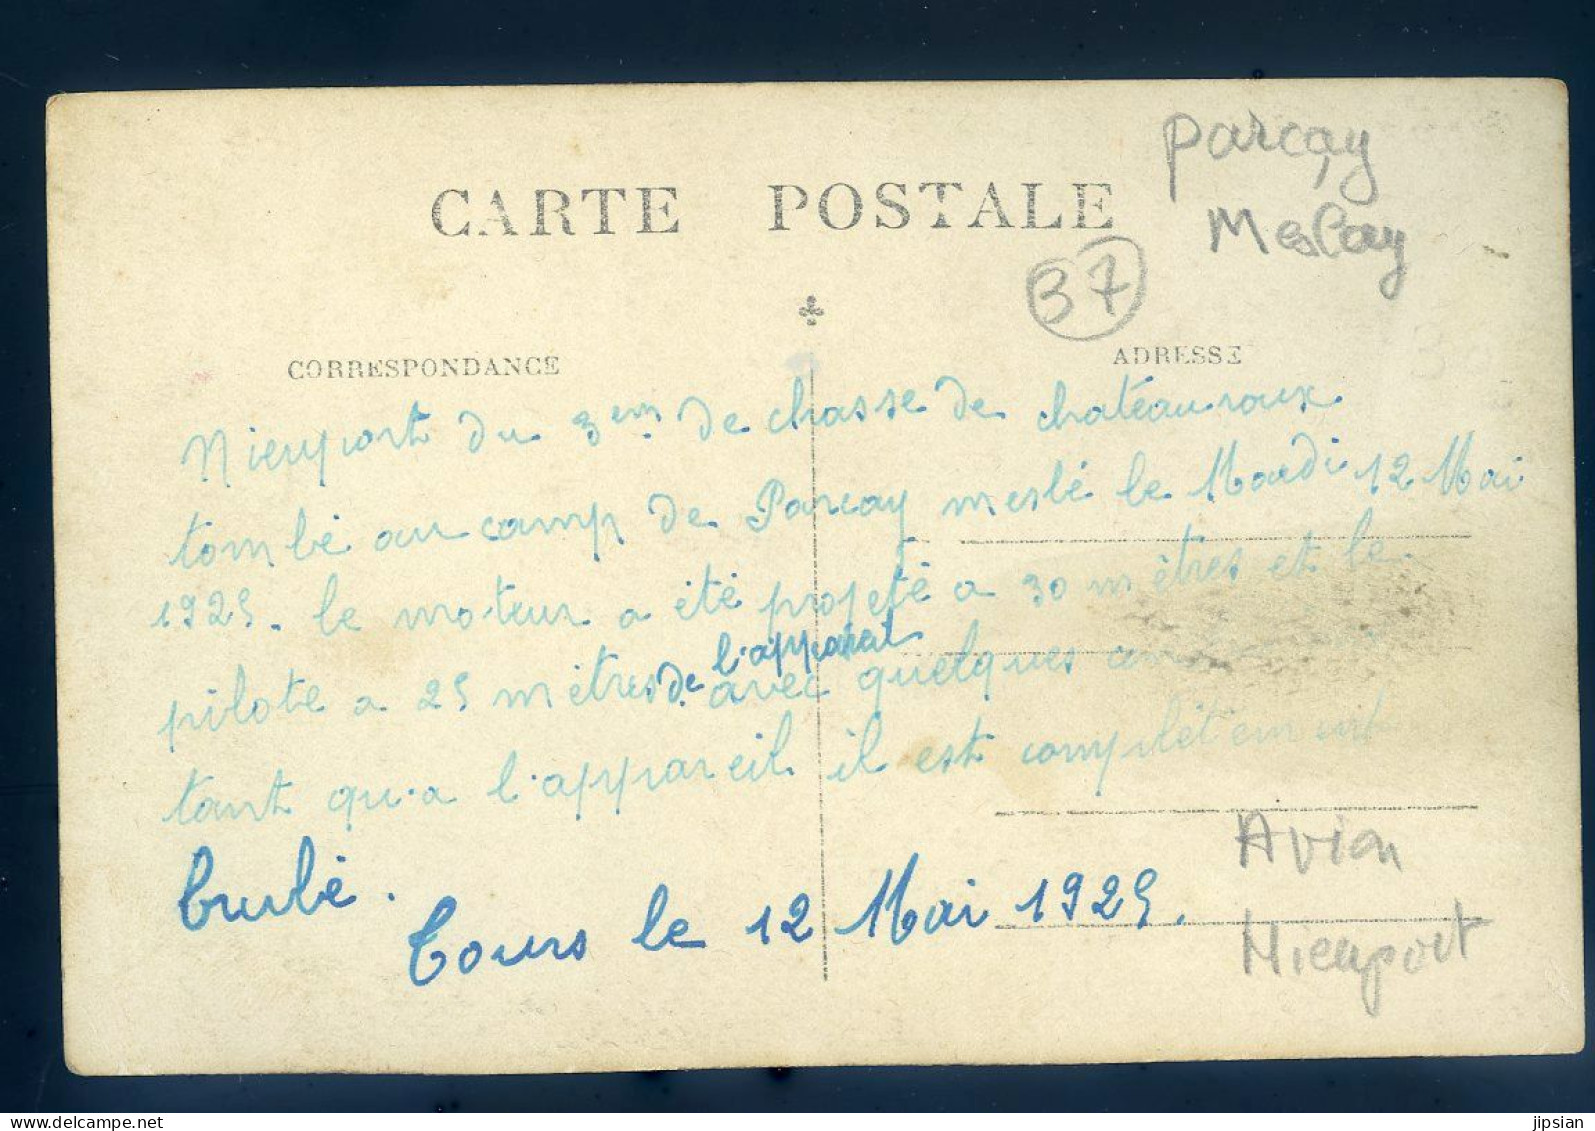 Parçay
Meslay
CARTE POSTALE
37
CORRESPONDANCE
ADRESSE
Nieuport du 3em de chasse de chatéauroux
tombé au camp de Parcay meslé le Mardi 12 Mai
1925. le moteur a été projeté a 30 mètres et le
pilote a 25 mètres de l'appareil avec quelques
tant qu'a l'appareil il est complètement
brulé.
Tours le 12 Mai 1925.
Avion
Nieuport
www.delcampe.net
jipsian